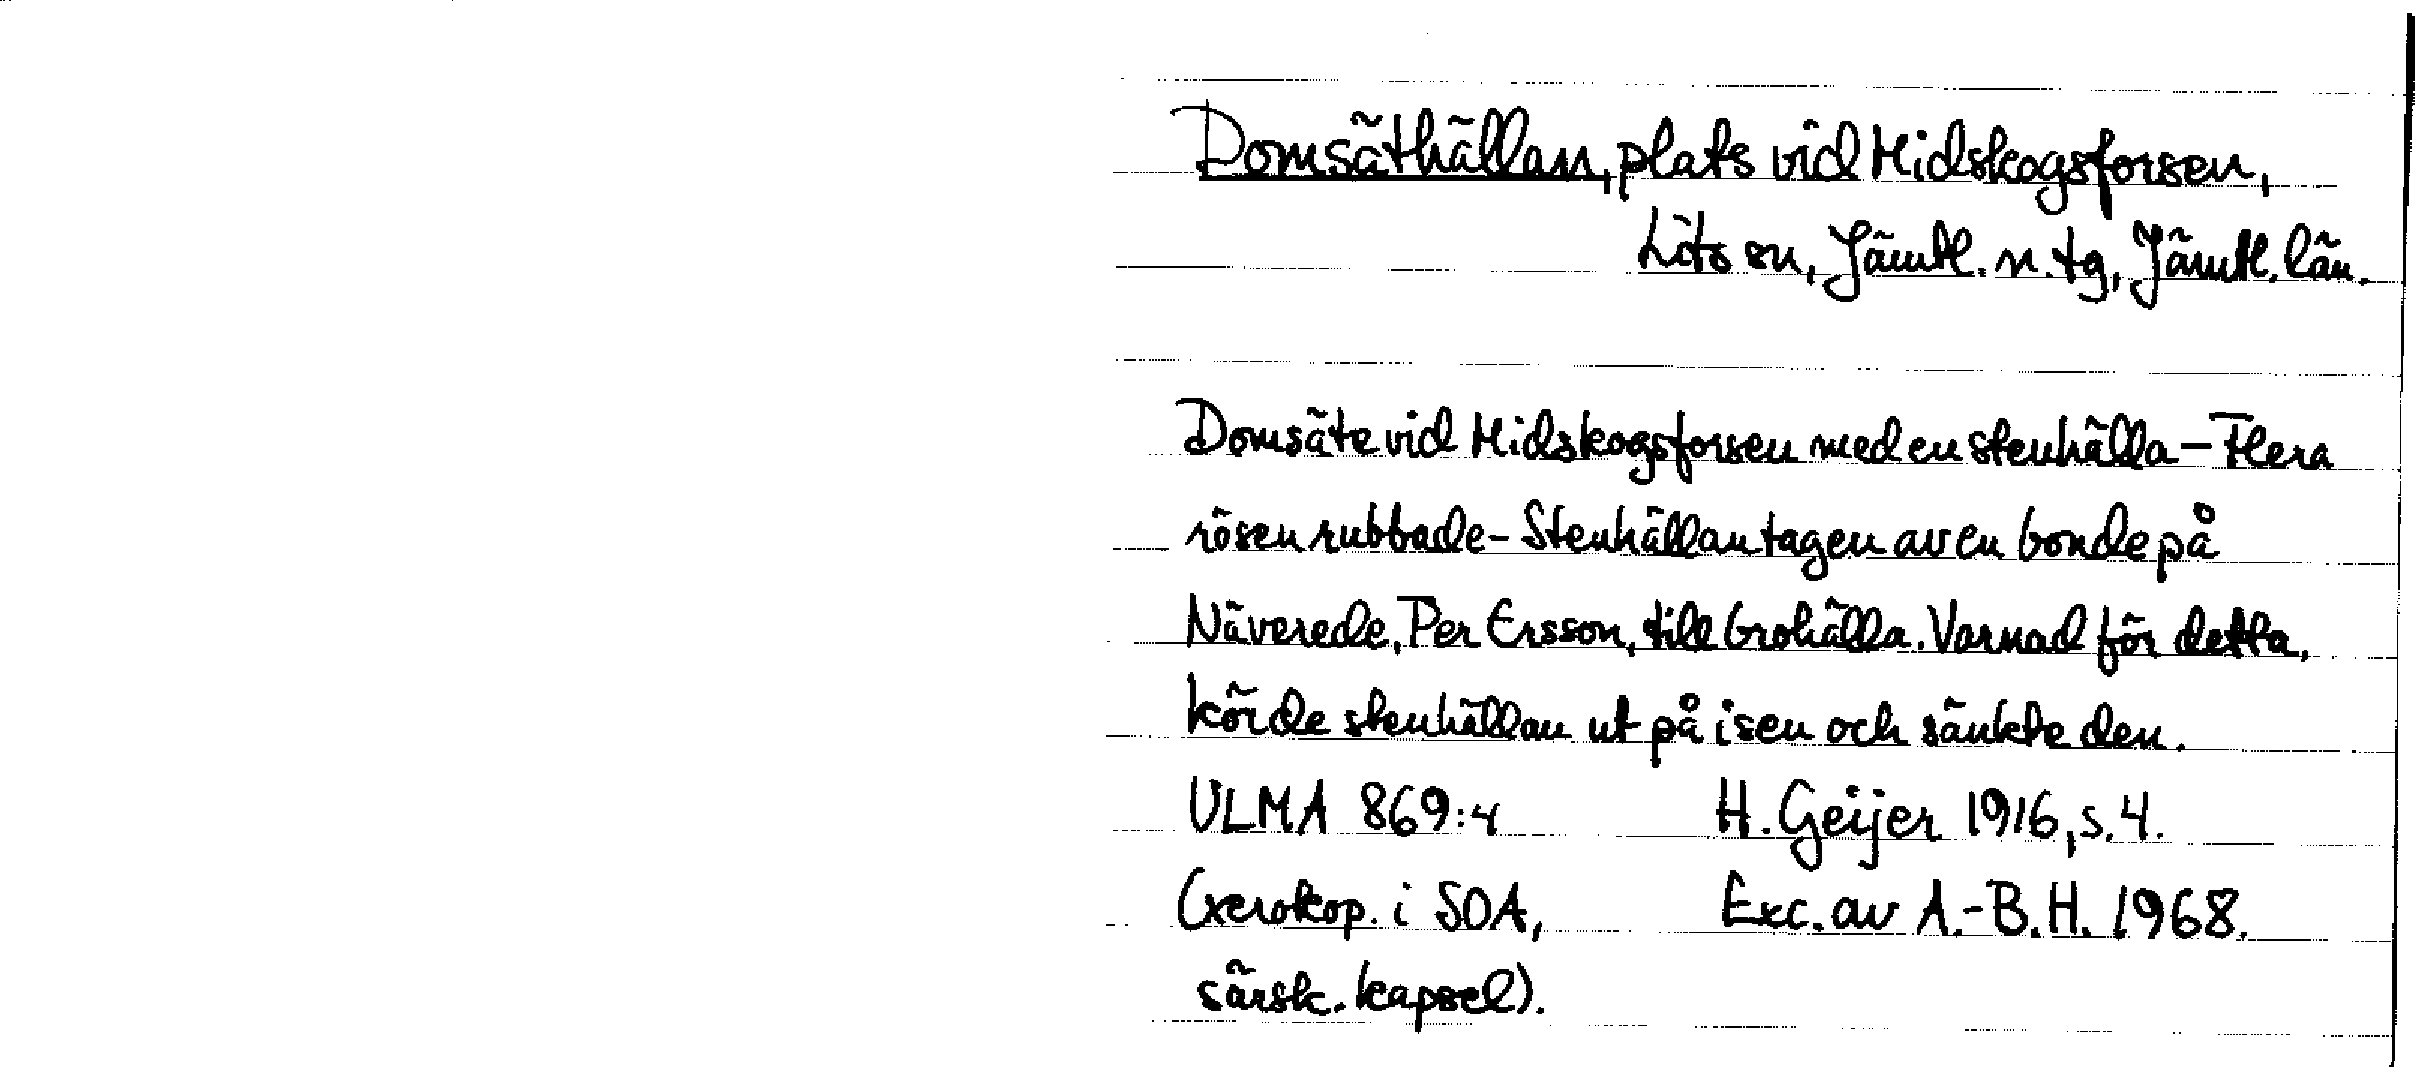 Domsäthällan, plats vid Midskogsforsen,
Lits sn, Jämtl. n. tg, Jämtl. län.
Domsäte vid Midskogsforsen med en stenhälla – Flera
rösen rubbade – Stenhällan tagen av en bonde på
Näverede, Per Ersson, till brohälla. Varnad för detta,
körde stenhällan ut på isen och sänkte den.
ULMA 869:4 H. Geijer 1916, s. 4.
(xerokop. i SOA, Exc. av A.-B. H. 1968.
särsk. kapsel).